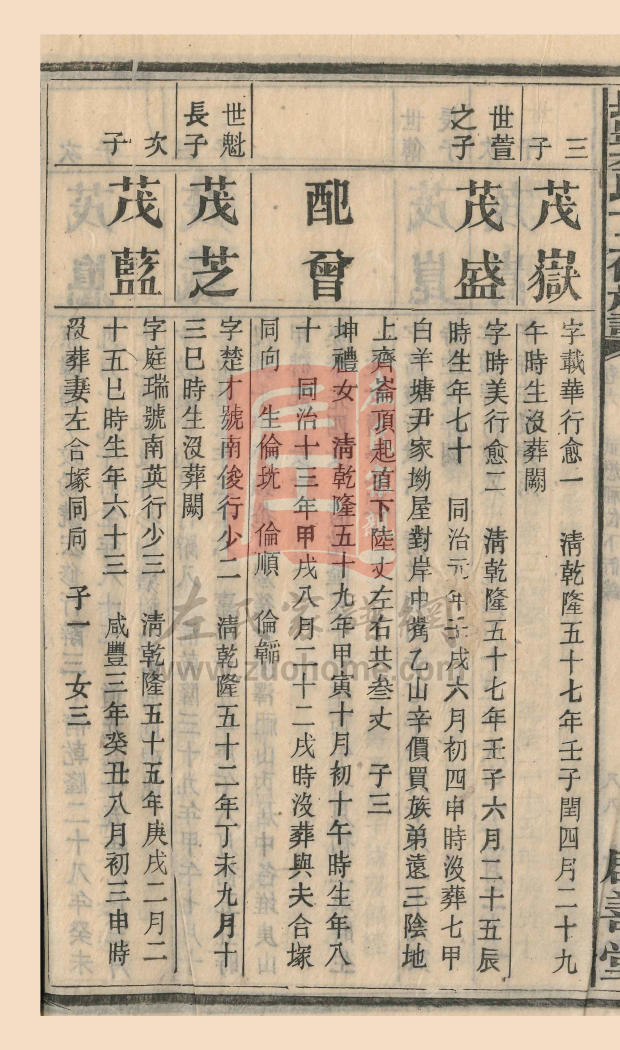 三子
茂嶽
字載華行愈一　淸乾隆五十七年壬子閏四月二十九
午時生沒葬闕
世萱之子
茂盛
字時美行愈二　淸乾隆五十七年壬子六月二十五辰
時生年七十　同治元年壬戌六月初四申時沒葬七甲
白羊塘尹家坳屋對岸中嘴乙山辛價買族弟遠三陰地
上齊崙頂起直下陸丈左右共叁丈　子三
配曾
坤禮女　淸乾隆五十九年甲寅十月初十午時生年八
十　同治十三年甲戌八月二十二戌時沒葬與夫合塚
同向　生倫珖　倫順　倫
世魁長子
茂芝
字楚才號南俊行少二　淸乾隆五十二年丁未九月十
三巳時生沒葬闕
次子
茂藍
字庭瑞號南英行少三　淸乾隆五十五年庚戌二月二
十五巳時生年六十三　咸豐三年癸丑八月初三申時
沒葬妻左合塚同向　子一　女三
善堂
左氏家譜網
www.zuohome.com